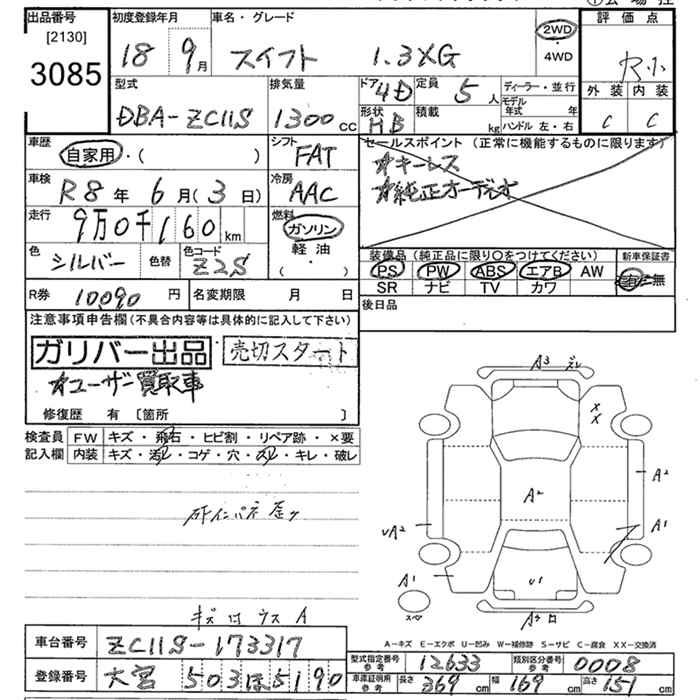 出品番号 初度登録年月 車名・グレード 評価点
[2130]
3085 18 9月 スイフト 1.3XG 2WD・4WD R小
型式 排気量 ドア 4D 定員 5人 ディーラー・並行 外装 内装
DBA-ZC11S 1300cc 形状 HB 積載 kg モデル年式 年 C C
ハンドル 左・右
車歴 自家用・( ) シフト FAT セールスポイント(正常に機能するものに限ります)
☆キーレス
☆純正オーディオ
車検 R8年 6月(3日) 冷房 AAC
走行 9万0千160km 燃料 ガソリン
軽油・( )
色 シルバー 色替 色コード Z2S
装備品(純正品に限り○をつけてください) 新車保証書
PS PW ABS エアB AW 有・無
SR ナビ TV カワ
R券 10,090円 名変期限 月 日 後日品
注意事項申告欄(不具合内容等は具体的に記入して下さい)
ガリバー出品 売切スタート
☆ユーザー買取車
修復歴 有〔箇所 〕
検査員 FW キズ・飛石・ヒビ割・リペア跡・×要
記入欄 内装 キズ・汚レ・コゲ・穴・スレ・キレ・破レ
A3 ズレ
X
X
A2
A2
A1
υA2
A1
υ1
スペア
A-キズ E-エクボ U-凹み W-補修跡 S-サビ C-腐食 XX-交換済
車台番号 ZC11S-173317
登録番号 大宮 503 ほ 5190
型式指定番号 参考 12633 類別区分番号 参考 0008
車庫証明用 参考 長さ 369cm 幅 169cm 高さ 151cm